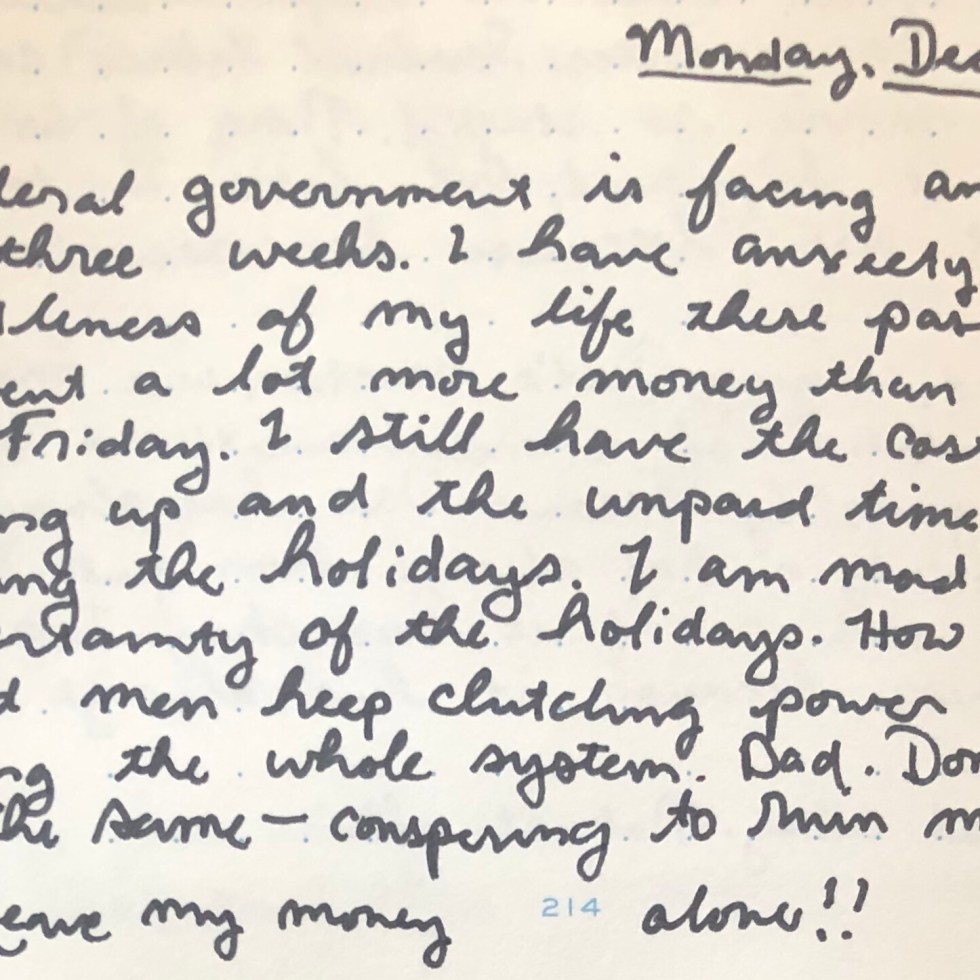 Monday, Dec
deral government is facing an
three weeks. I have anxiety
leness of my life these pas
ent a lot more money than
Friday. I still have the cos
ng up and the unpaid time
ing the holidays. I am mad
ertainty of the holidays. How
d men keep clutching power
ng the whole system. Dad. Don
the same — conspering to ruin m
leave my money 214 alone!!